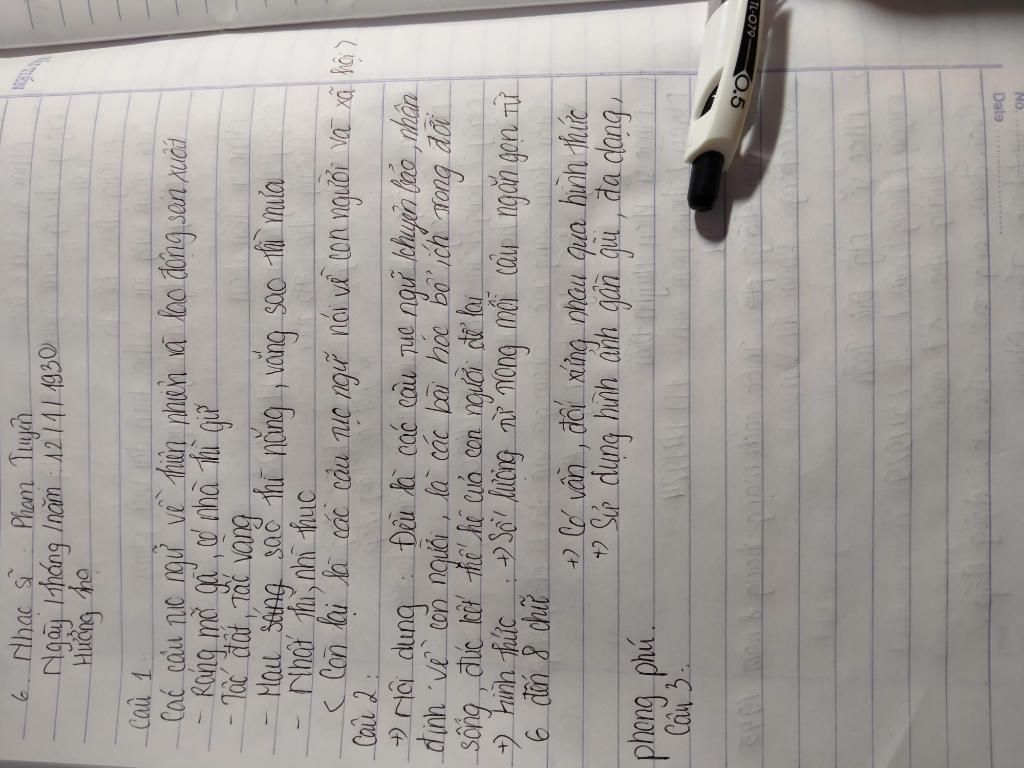 6. Nhạc sĩ: Phạm Tuyên
Ngày tháng năm: 12/1/1930
Hưởng thọ
Câu 1:
Các câu tục ngữ về thiên nhiên và lao động sản xuất
- Ráng mỡ gà, có nhà thì giữ
- Tấc đất, tấc vàng
- Mau sao thì nắng, vắng sao thì mưa
- Nhất thì, nhì thục
( Còn lại là các câu tục ngữ nói về con người và xã hội)
Câu 2:
+) Nội dung: Đều là các câu tục ngữ khuyên bảo, nhận
định về con người, là các bài học bổ ích trong đời
sống, đúc rút thế hệ của con người để lại
+) hình thức: +) Số lượng từ trong mỗi câu ngắn gọn từ
6 đến 8 chữ
+) Có vần, đối xứng nhau qua hình thức
+) Sử dụng hình ảnh gần gũi, đa dạng,
phong phú.
Câu 3:
No.
Date
TL-079
0.5